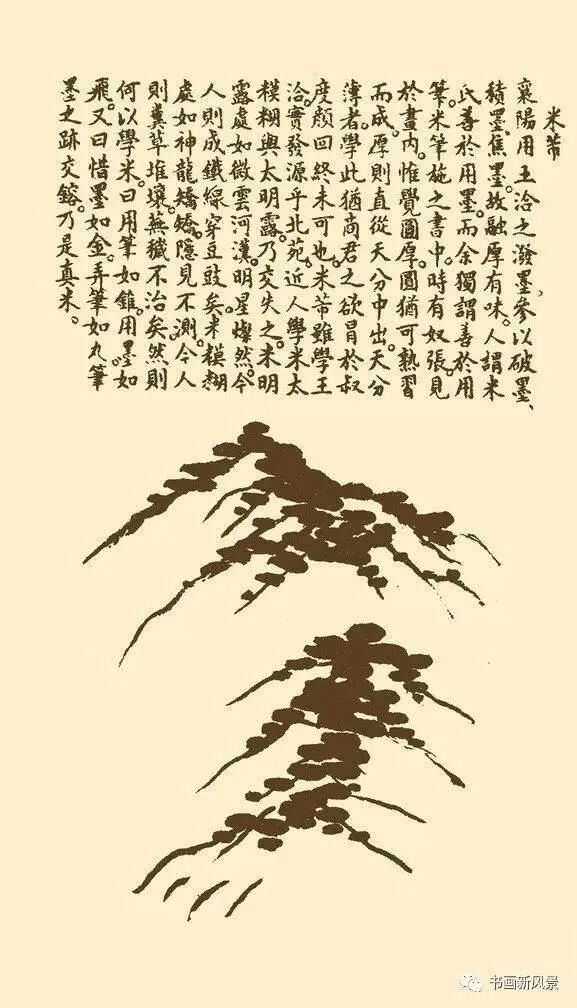 米芾
襄陽用王洽之潑墨、參以破墨、
積墨、焦墨。故融厚有味。人謂米
氏善於用墨。而余獨謂善於用
筆。米筆施之書中。時有奴張。見
於畫內。惟覺圓厚。圓猶可熟習
而成。厚則直從天分中出。天分
薄者。學此猶尚君之欲冐於叔
度。顏回終未可也。米芾雖學王
洽。實發源乎北苑。近人學米。太
模糊與太明露。乃交失之。未明
露處如微雲河漢。明星燦然。今
人則成鐵線穿豆豉矣。米模糊
處如神龍矯矯。隱見不測。今人
則糞草堆壞。蕪穢不治矣。然則
何以學米。曰用筆如錐。用墨如
飛。又曰惜墨如金。弄筆如丸。筆
墨之跡交鎔。乃是真米。
书画新风景